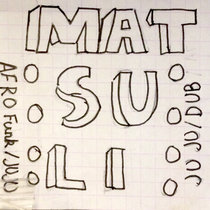 MAT
SU
LI
AFRO Funk/JUJU
JUJU/DUB